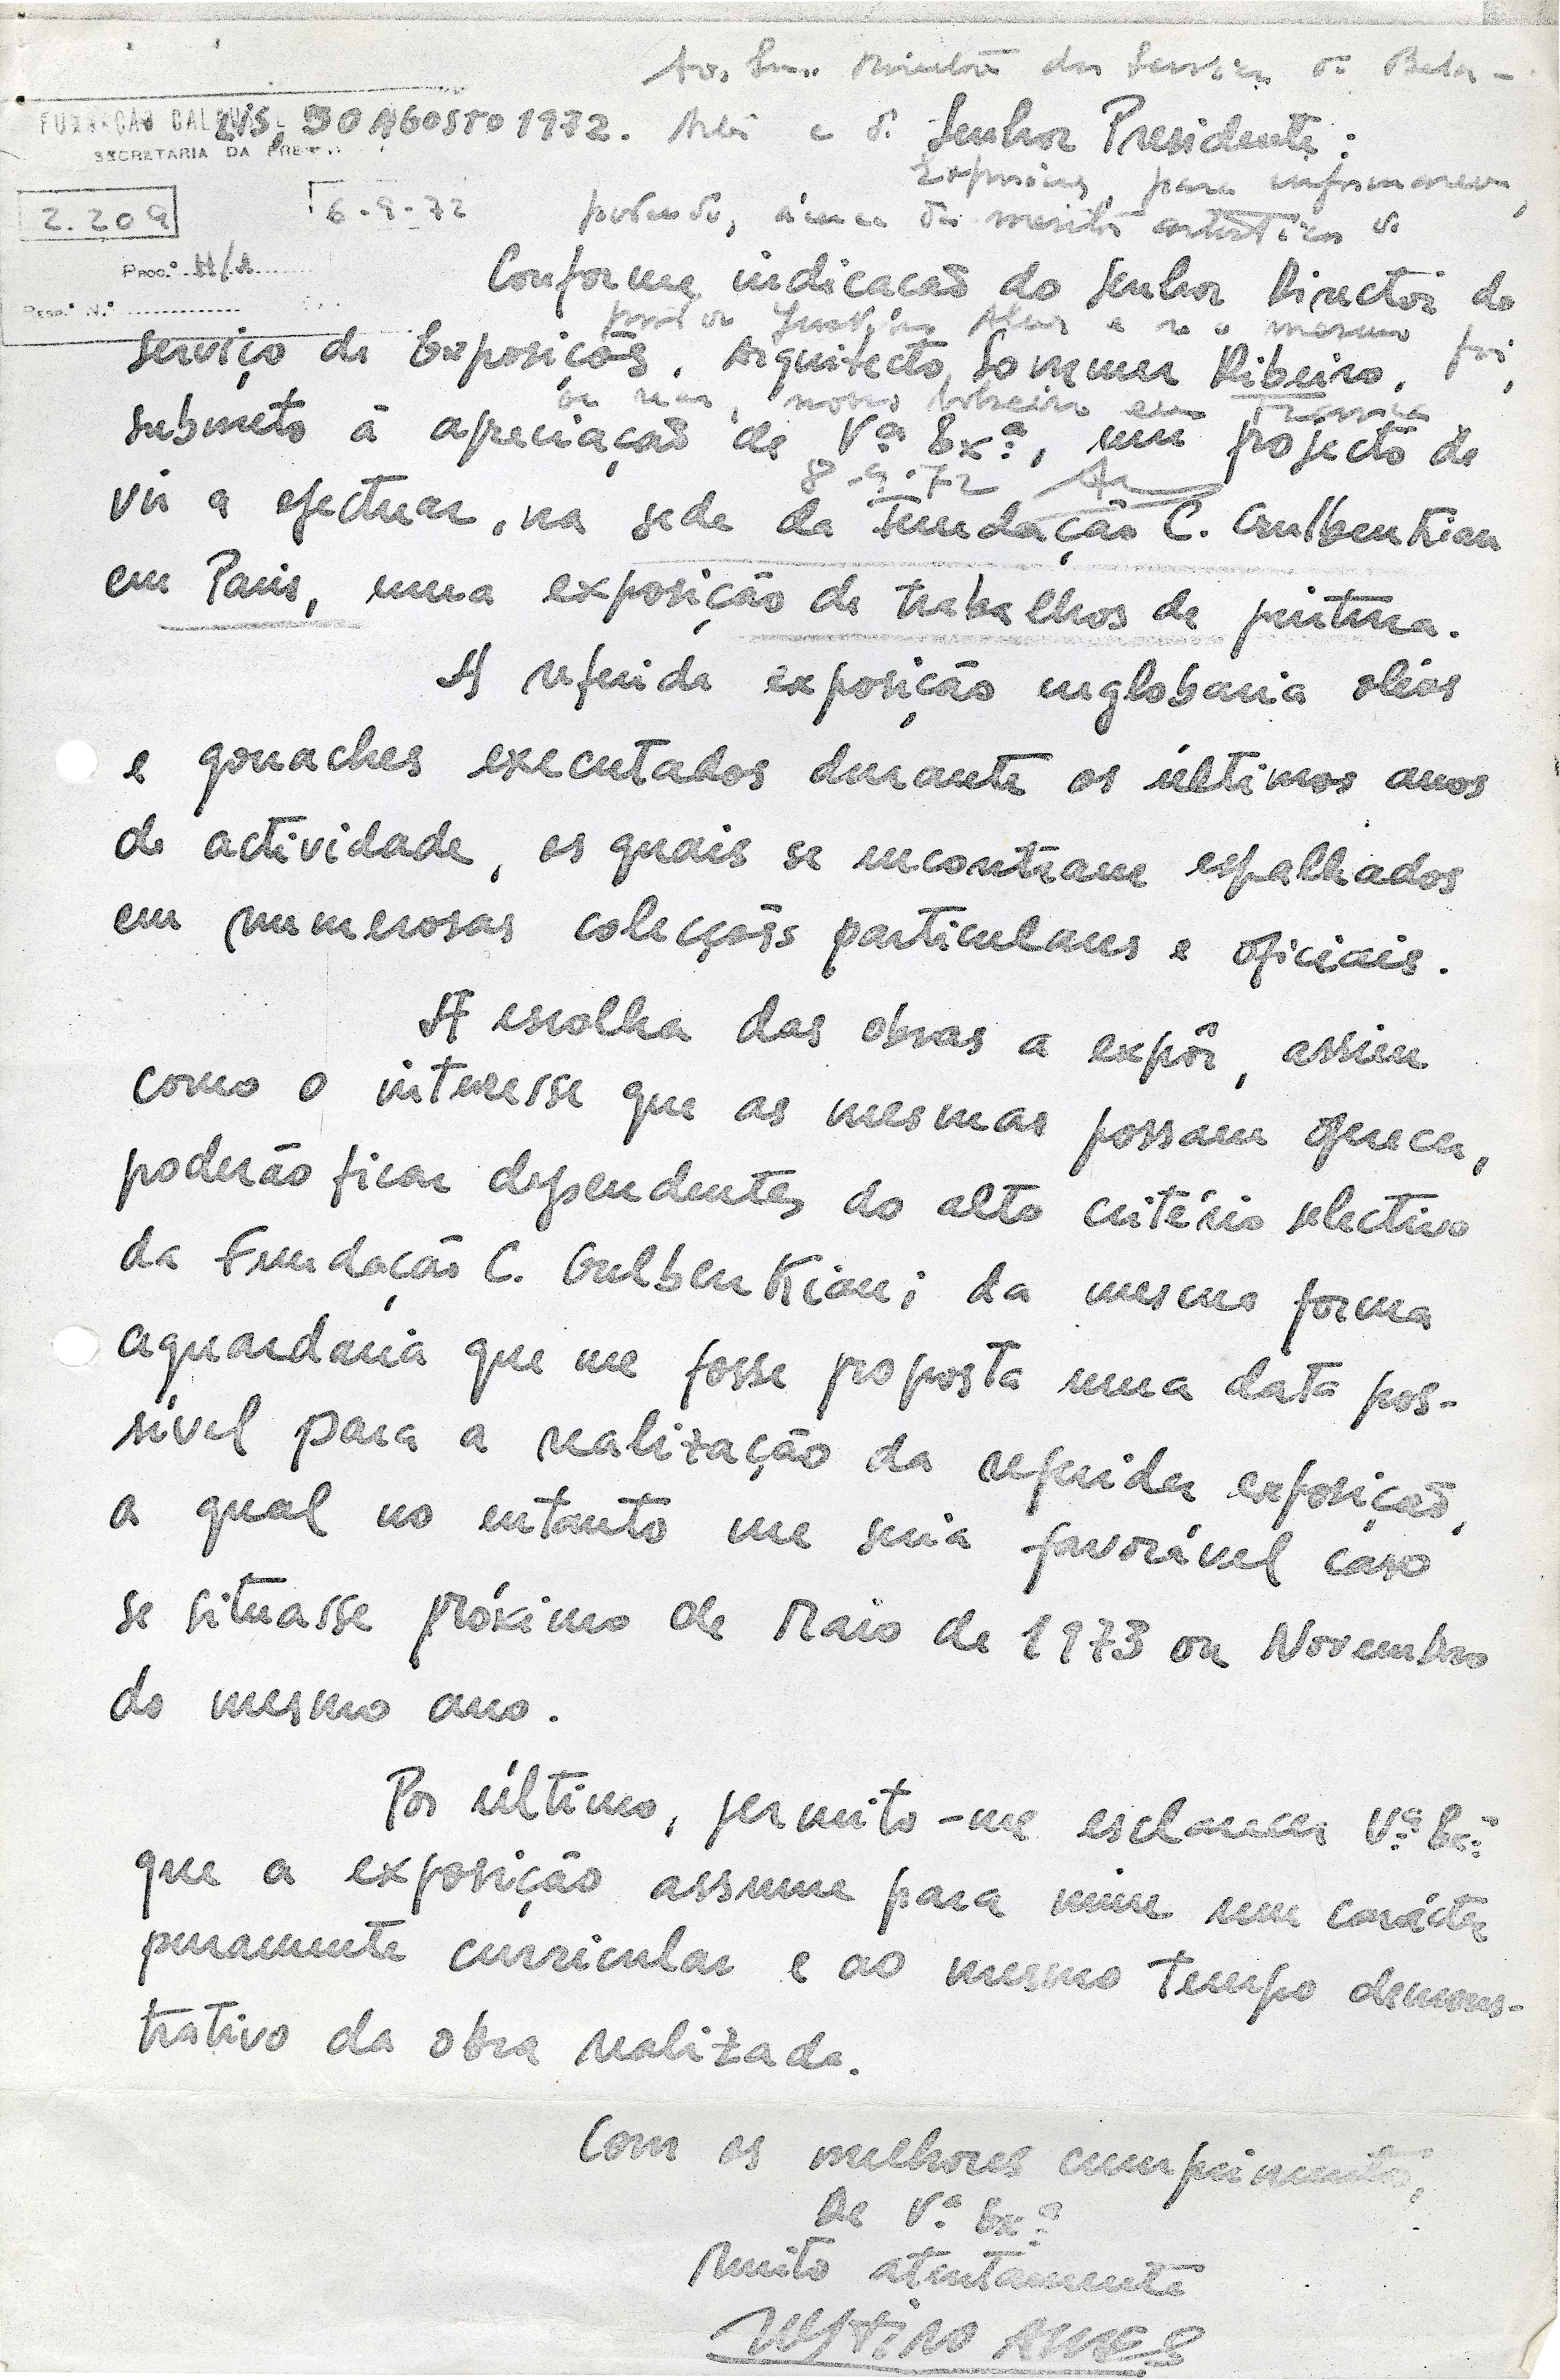 Ao Sr. Director dos Serviços de Belas-
FUNDAÇÃO CALOUSTE
LIS, 30 AGOSTO 1972.
Artes e de
Senhor Presidente:
SECRETARIA DA PRES.
Exposições, para informarem,
2.209
6-9-72
podendo, acerca do mérito artístico do
PROC.º
Conforme indicacaõ do Senhor Director do
RESP. N.º
pintor Justino Alves e se o mesmo foi,
serviço de Exposições, Arquitecto Sommer Ribeiro,
ou não, nosso bolseiro em França
submeto à apreciaçaõ de Vª Exª, um projecto de
8-9-72
vir a efectuar, na sede da Fundação C. Gulbenkian
em Paris, uma exposição de trabalhos de pintura.
A referida exposição englobaria oleos
e gouaches executados durante os últimos anos
de actividade, os quais se encontram espalhados
em numerosas colecções particulares e oficiais.
A escolha das obras a expôr, assim
como o interesse que as mesmas possam oferecer,
poderão ficar dependentes do alto critério selectivo
da Fundação C. Gulbenkian; da mesma forma
aguardaria que me fosse proposta uma data pos-
sível para a realização da referida exposiçaõ,
a qual no entanto me seria favorável caso
se situasse próximo de Maio de 1973 ou Novembro
do mesmo ano.
Por último, permito-me esclarecer Vª Exª
que a exposição assume para mim um carácter
puramente curricular e ao mesmo tempo demons-
trativo da obra realizada.
Com os melhores cumprimentos,
De Vª Exª
Muito atentamente
JUSTINO ALVES